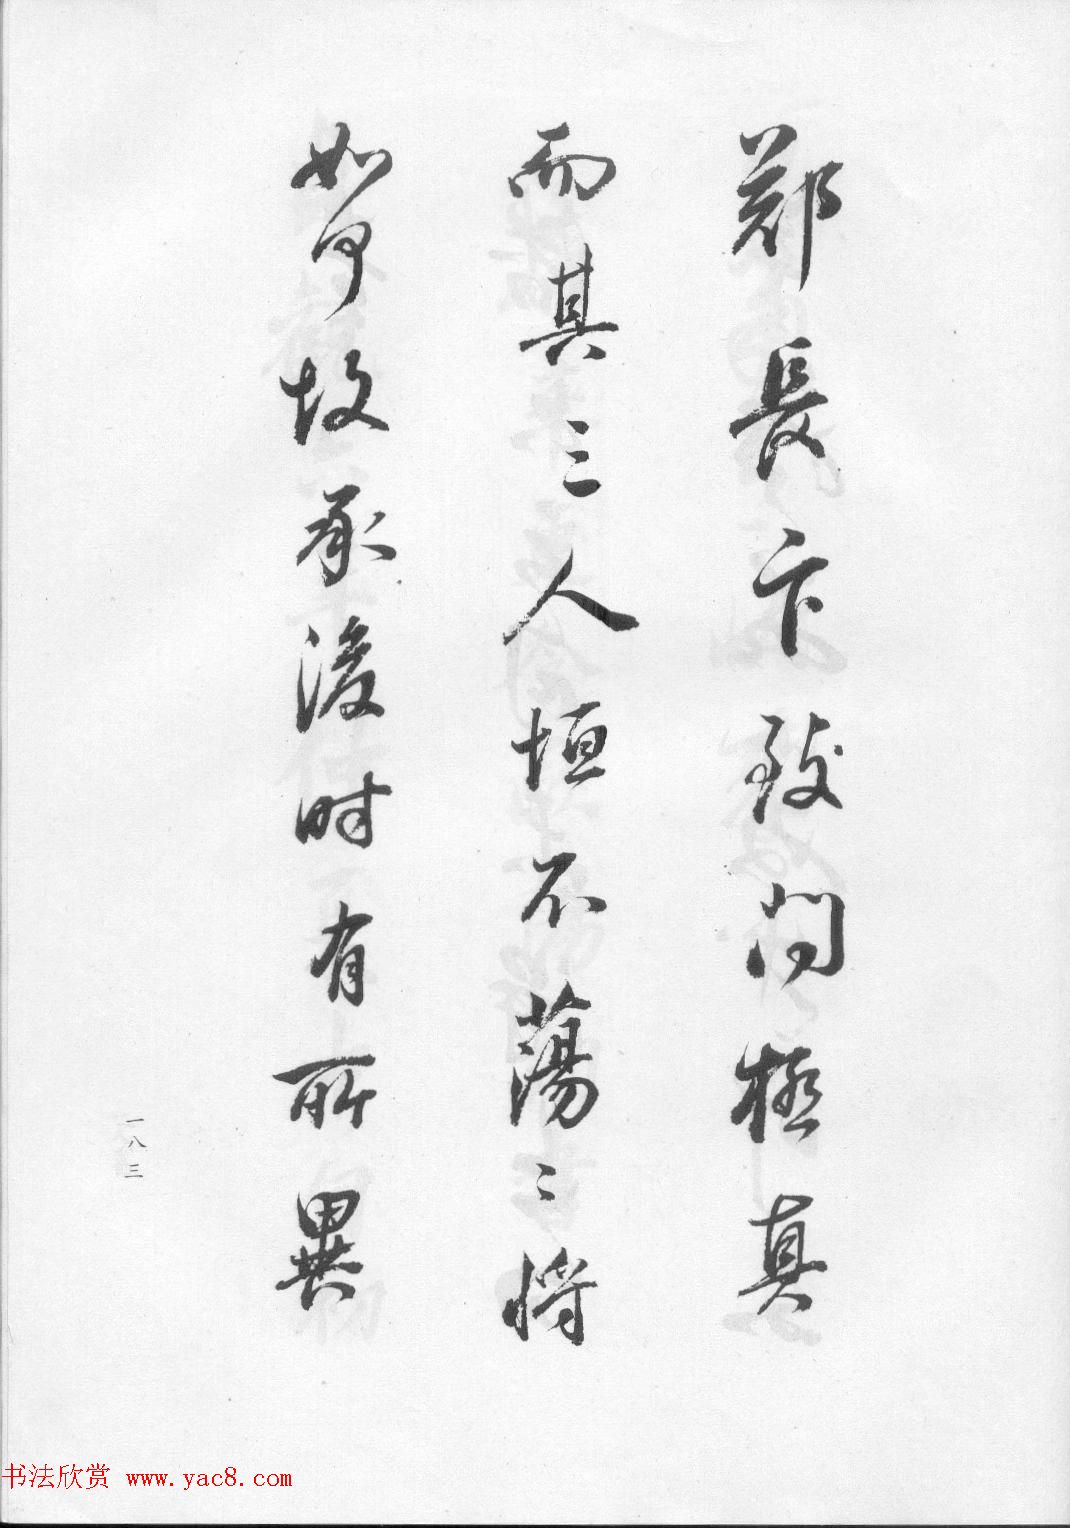 鄭長卞致問極真
而其三人恒不蕩〻将
如何故承後時有所異
一八三
书法欣赏 www.yac8.com